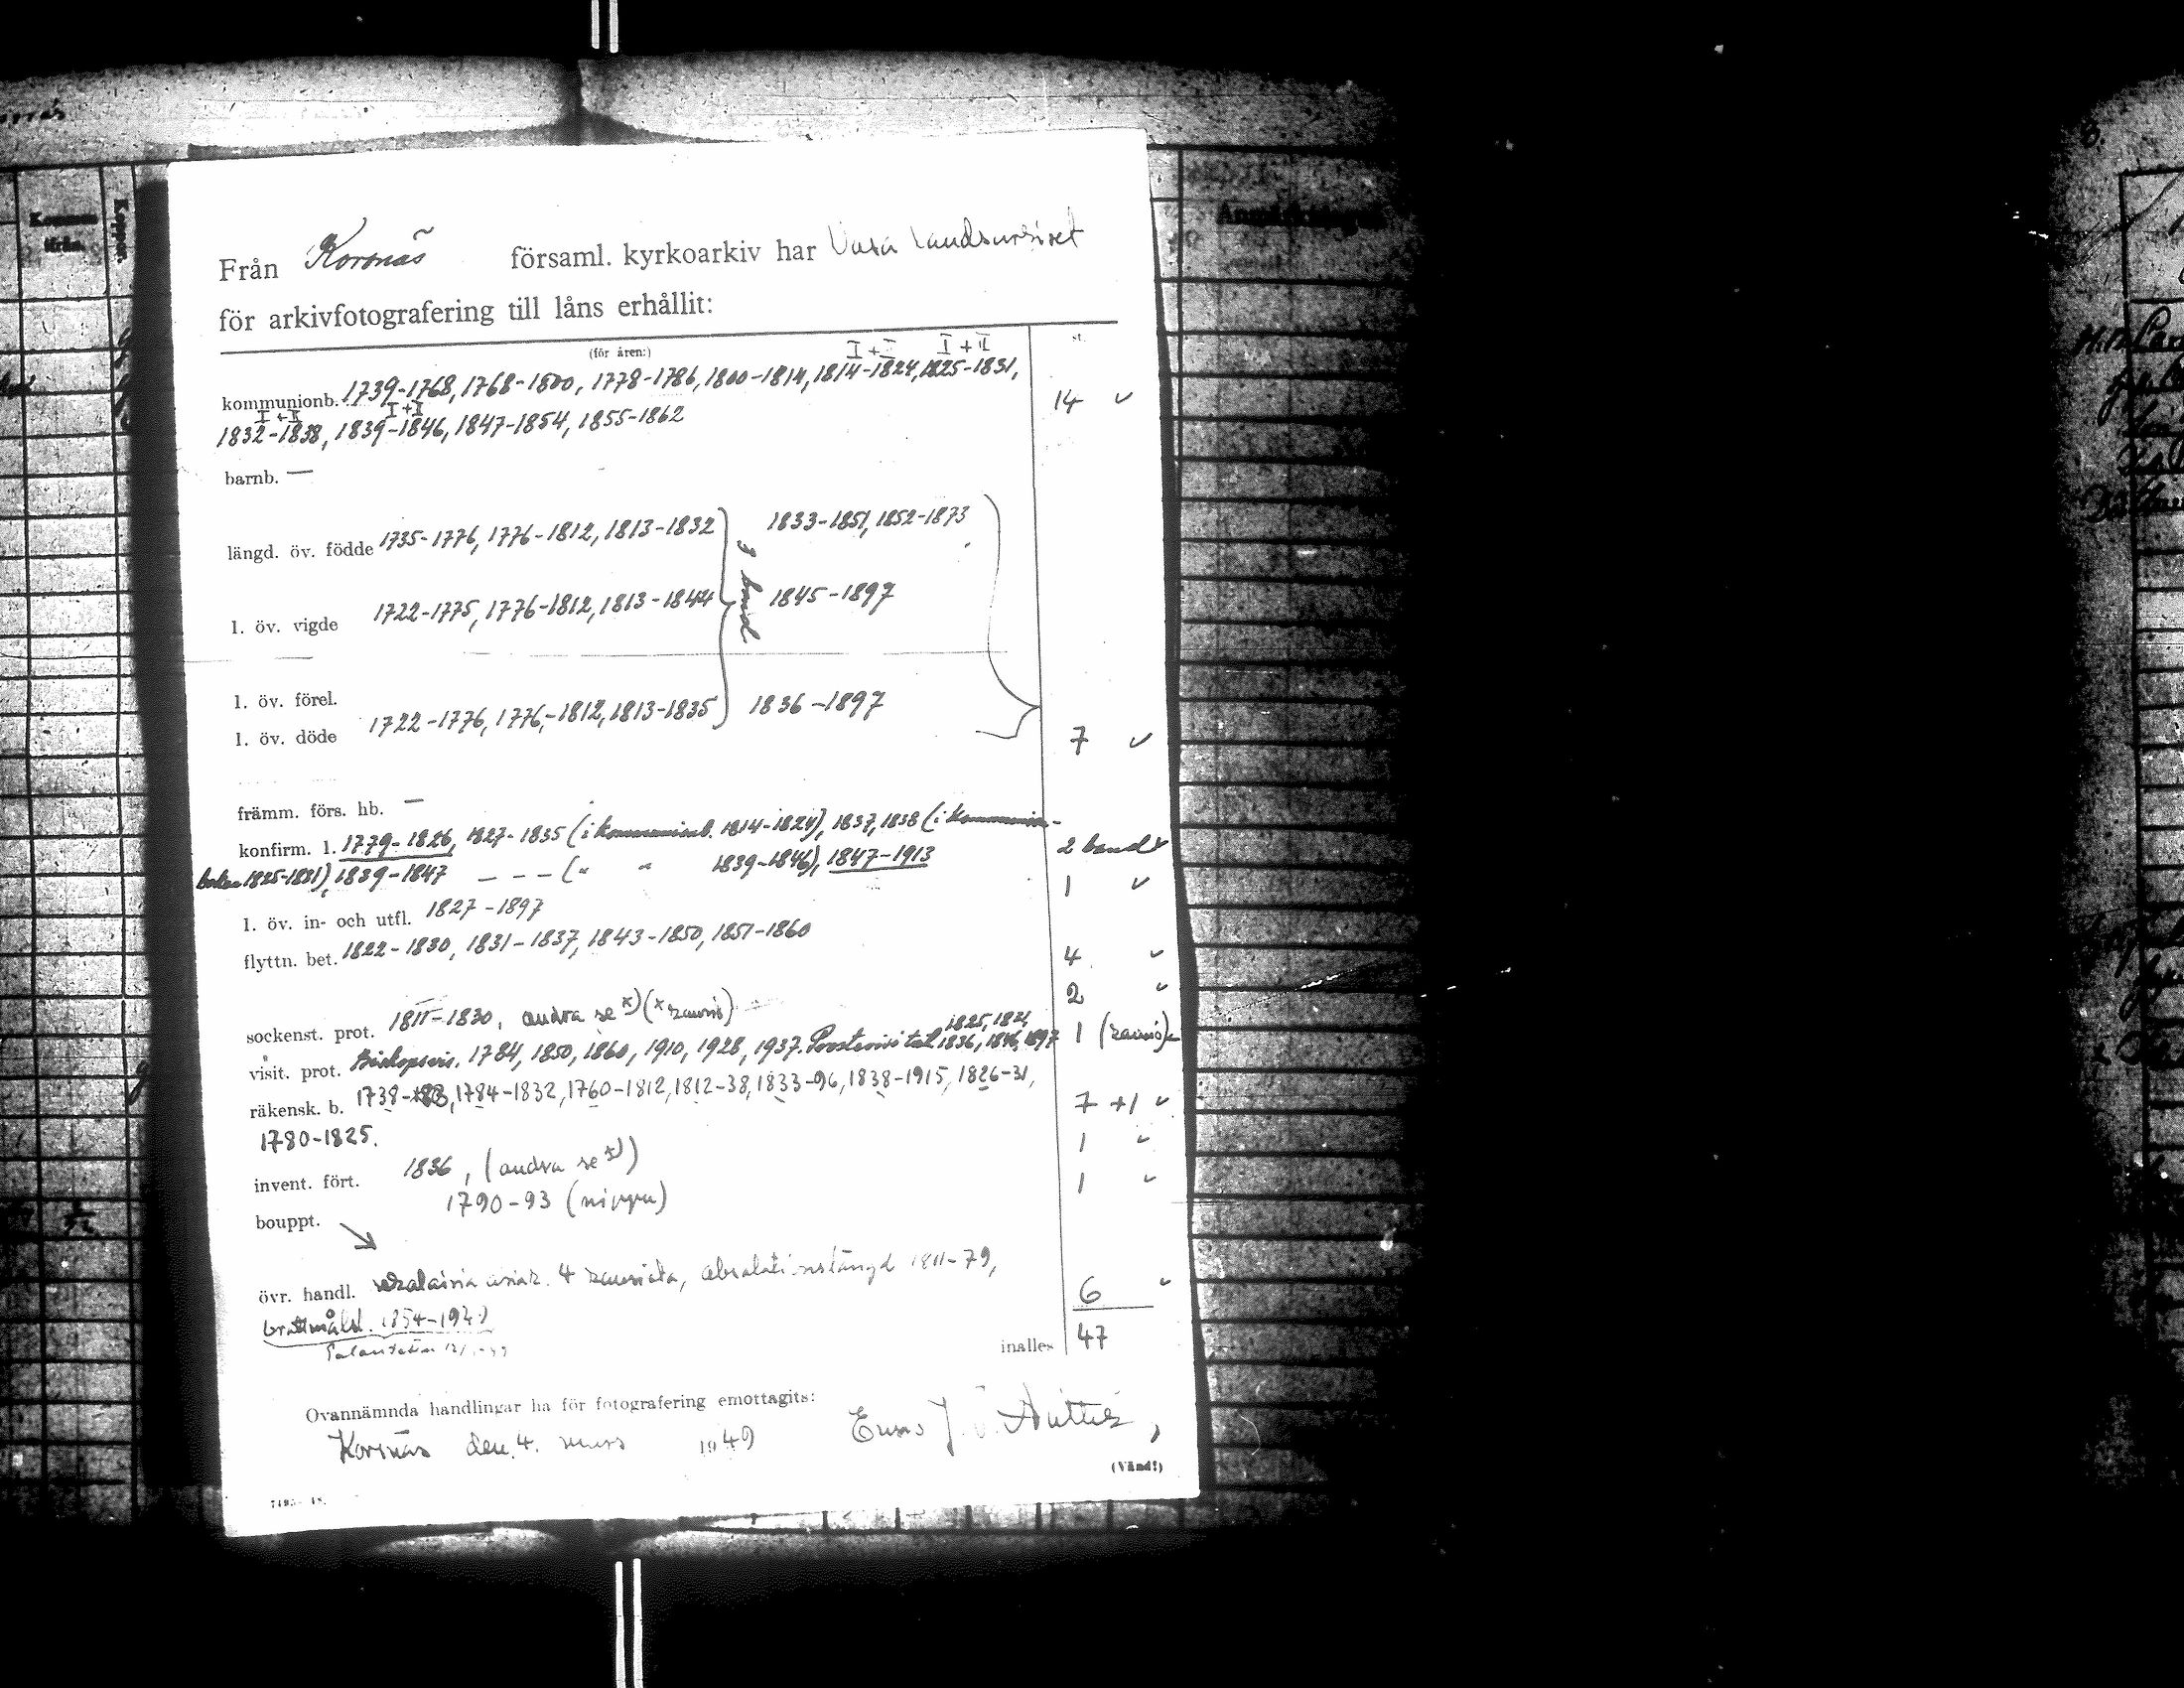 Från Korsnäs församl. kyrkoarkiv har Vasa landsarkivet
för arkivfotografering till låns erhållit:
(för åren:) st.
I + II I + II
kommunionb. 1739-1768, 1768-1800, 1778-1786, 1800-1814, 1814-1824, 1825-1831, 14 ✓
I + II I + I
1832-1838, 1839-1846, 1847-1854, 1855-1862
barnb. —
längd. öv. födde 1735-1776, 1776-1812, 1813-1832 1833-1851, 1852-1873
3 band
l. öv. vigde 1722-1775, 1776-1812, 1813-1844 1845-1897
l. öv. förel.
l. öv. döde 1722-1776, 1776-1812, 1813-1835 1836-1897 7 ✓
främm. förs. hb. —
konfirm. l. 1779-1826, 1827-1835 (i kommunionb. 1814-1824), 1837, 1838 (i kommunion- 2 band ✓
boken 1825-1831), 1839-1847 — — — (" " 1839-1846), 1847-1913 1 ✓
l. öv. in- och utfl. 1827-1897
flyttn. bet. 1822-1830, 1831-1837, 1843-1850, 1851-1860 4 ✓
2 ✓
sockenst. prot. 1811-1830, andra se x) (x
1825, 1821,
visit. prot. Biskopsvis. 1784, 1850, 1860, 1910, 1928, 1937. 1836, 1846, 1897 1
räkensk. b. 1738-83, 1784-1832, 1760-1812, 1812-38, 1833-96, 1838-1915, 1826-31, 7 +1 ✓
1780-1825. 1 ✓
invent. fört. 1836, (andra se x)) 1 ✓
bouppt. 1790-93
övr. handl. 4 1811-79, 6 ✓
1854-1940
inalles 47
Ovannämnda handlingar ha för fotografering emottagits:
Korsnäs den 4. mars 1949
(Vänd!)